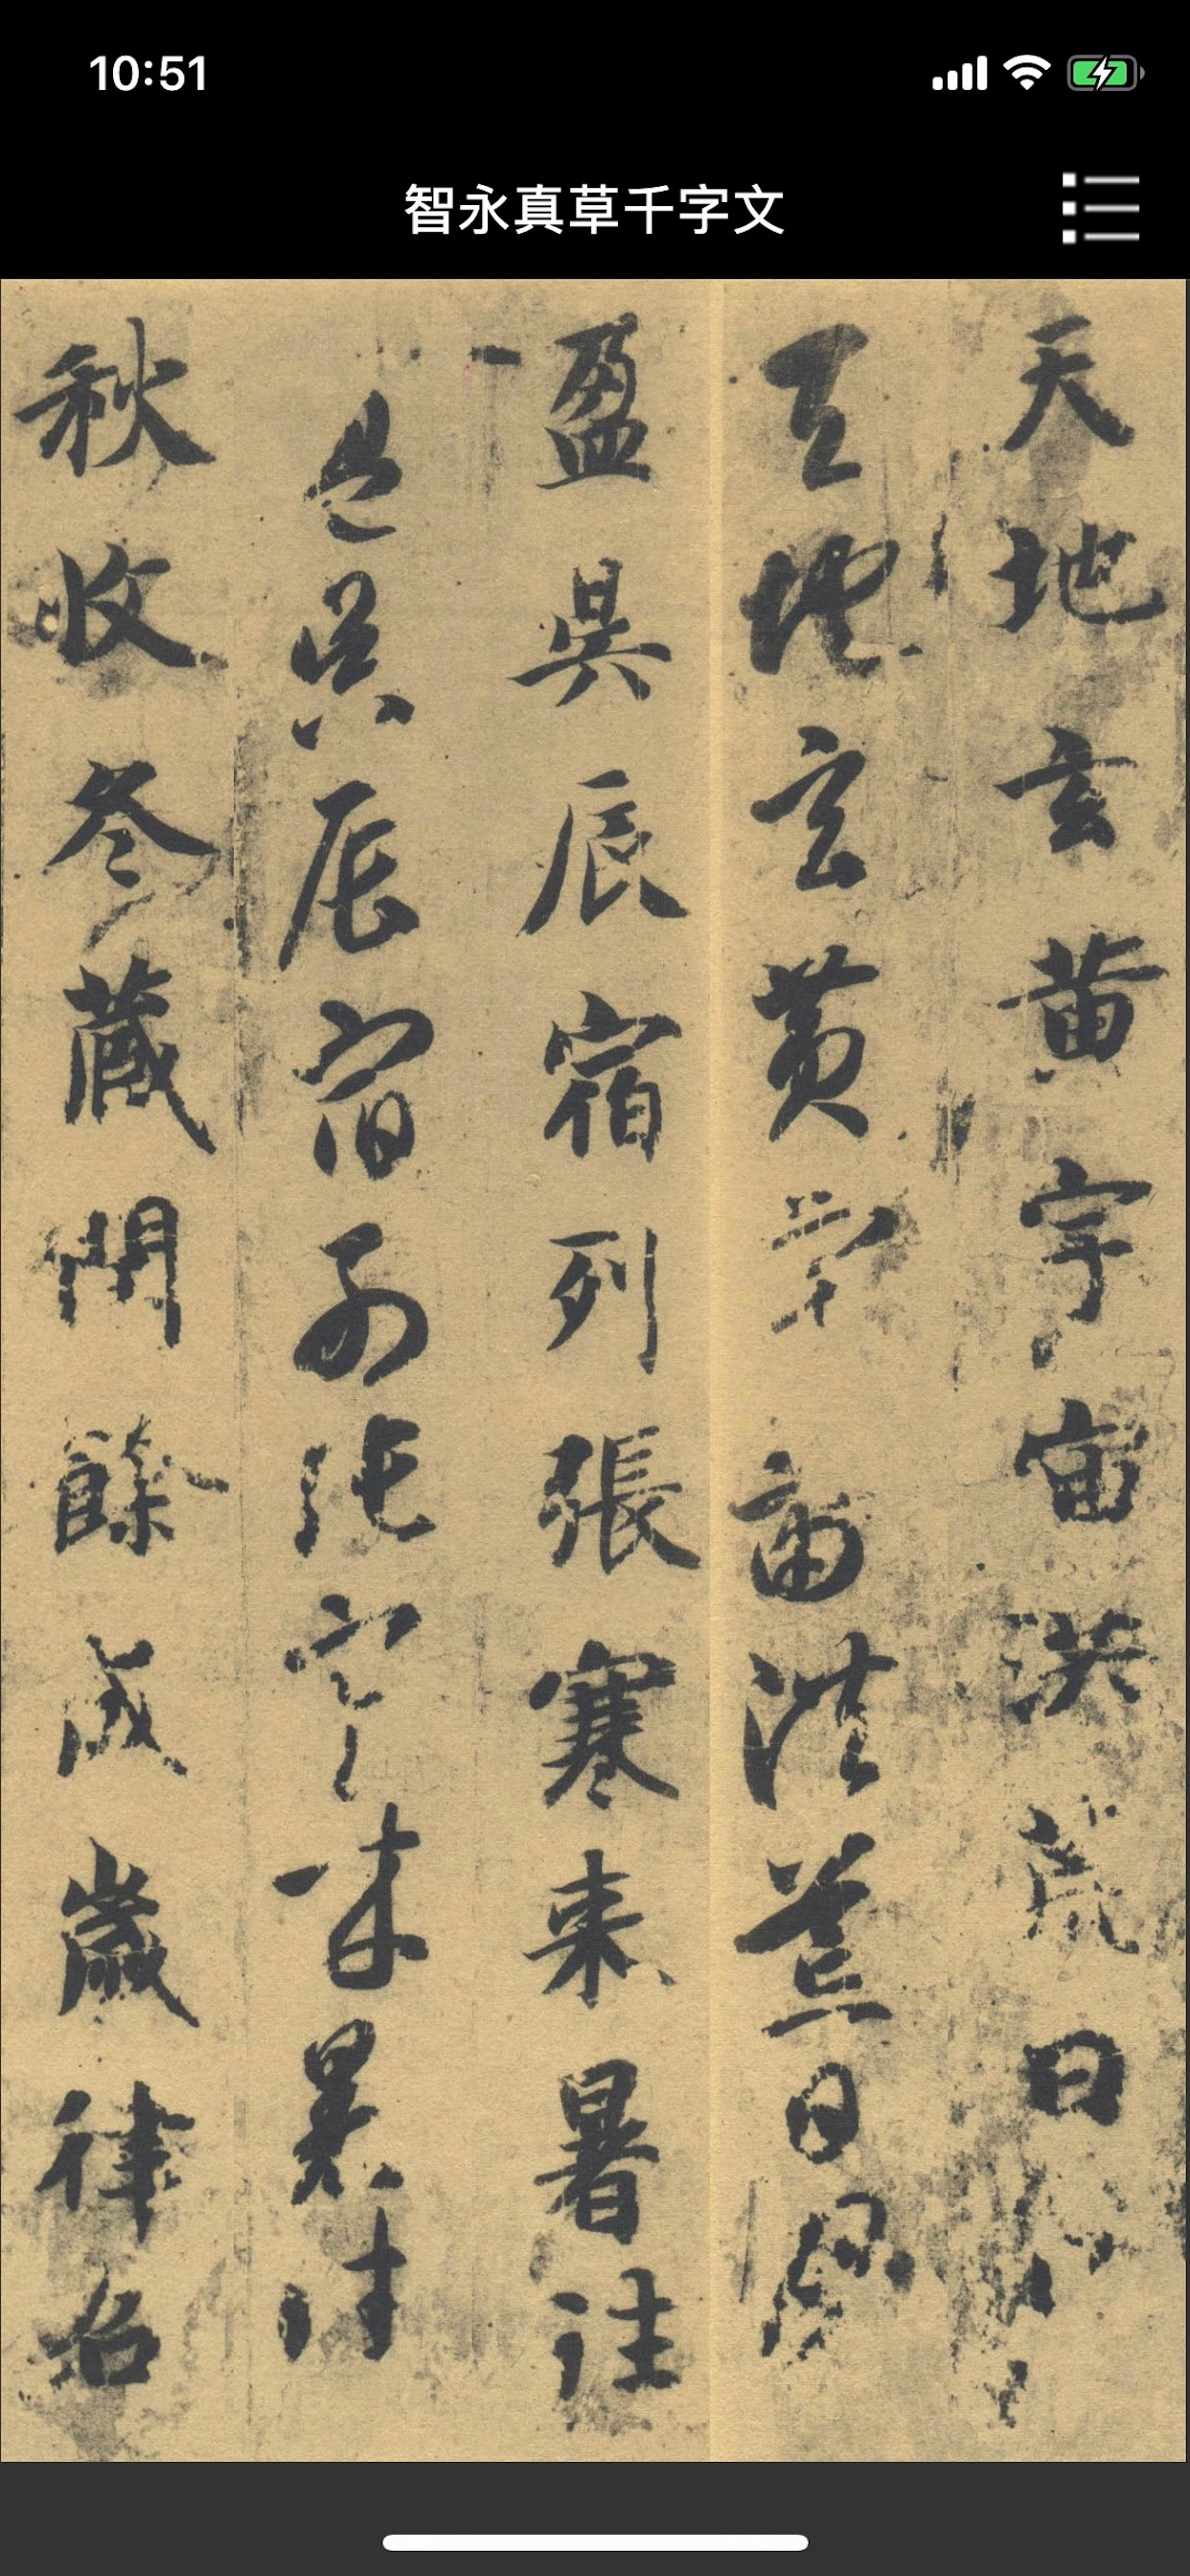 10:51
智永真草千字文
天地玄黄宇宙洪荒日
天地玄黄宇宙洪荒日月
盈昃辰宿列張寒来暑往
盈昃辰宿列張寒来暑往
秋收冬藏閏餘成歲律召